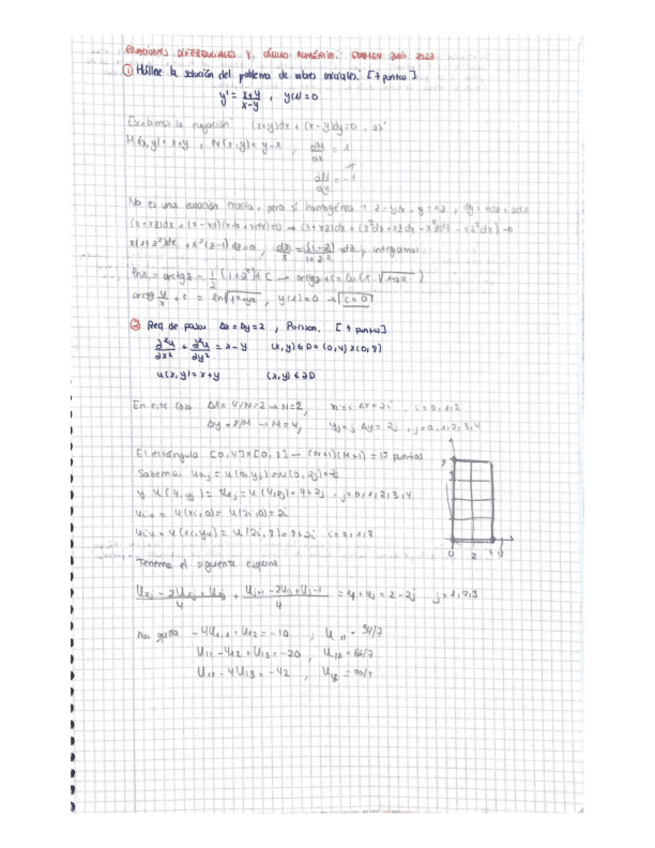 ECUACIONES DIFERENCIALES Y CÁLCULO NUMÉRICO: EXAMEN JULIO 2023
① Hállese la solución del problema de valores iniciales: [7 puntos]
y' = x+y / x-y , y(1)=0
Escribimos la ecuación (x+y)dx + (x-y)dy=0 ,
M(x,y)= x+y , N(x,y)= y-x , = 1
= -1
No es una ecuación exacta, pero sí homogénea → z = y/x → y = xz , dy = xdz + zdx
x(1+z²)dx + x²(z-1)dz=0 , dx/x = (1-z)/1+z² dz , integramos
lnx = arctgz - 1/2 (1+z²)+C → arctgz + c = ln(x·√1+z²)
arctg y/x + c = ln√x²+y² , y(1)=0 → C=0
② Red de pasos Δx = Δy = 2 , Poisson. [7 puntos]
∂²u/∂x² + ∂²u/∂y² = x-y (x,y)∈D=(0,4)x(0,8)
u(x,y)=x+y (x,y)∈∂D
En este caso Δx= 4/N=2 → N=2, xi=i·Δx=2i , i=0,1,2
Δy = 8/M → M=4, yj=j Δy= 2j , j=0,1,2,3,4
El rectángulo [0,4]x[0,8] → (N+1)(M+1) = puntos
Sabemos u0j = u(0,yj)=u(0,2j)=2j
y u(4,yj)= u2j = u(4,2j)= 4+2j , j=0,1,2,3,4
ui0 = u(xi,0)= u(2i,0)= 2i
ui4 = u(xi,y4)= u(2i,8)= 8+2i i=0,1,2
0 2 4
Tenemos el siguiente esquema
U2j - 2U1j + U0j / 4 + Uj+1 - 2U1j + U1j-1 / 4 = = 2-2j j=1,2,3
nos queda -4U1,1 + U12 = -10 ; U11 = 34/7
U11 - 4U12 + U13 = -20 , U12 = 66/7
U12 - 4U13 = -42 , U13 = 90/7